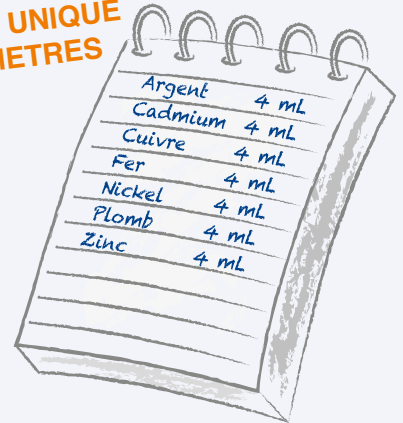 UNIQUE
Argent 4 mL
Cadmium 4 mL
Cuivre 4 mL
Fer 4 mL
Nickel 4 mL
Plomb 4 mL
Zinc 4 mL